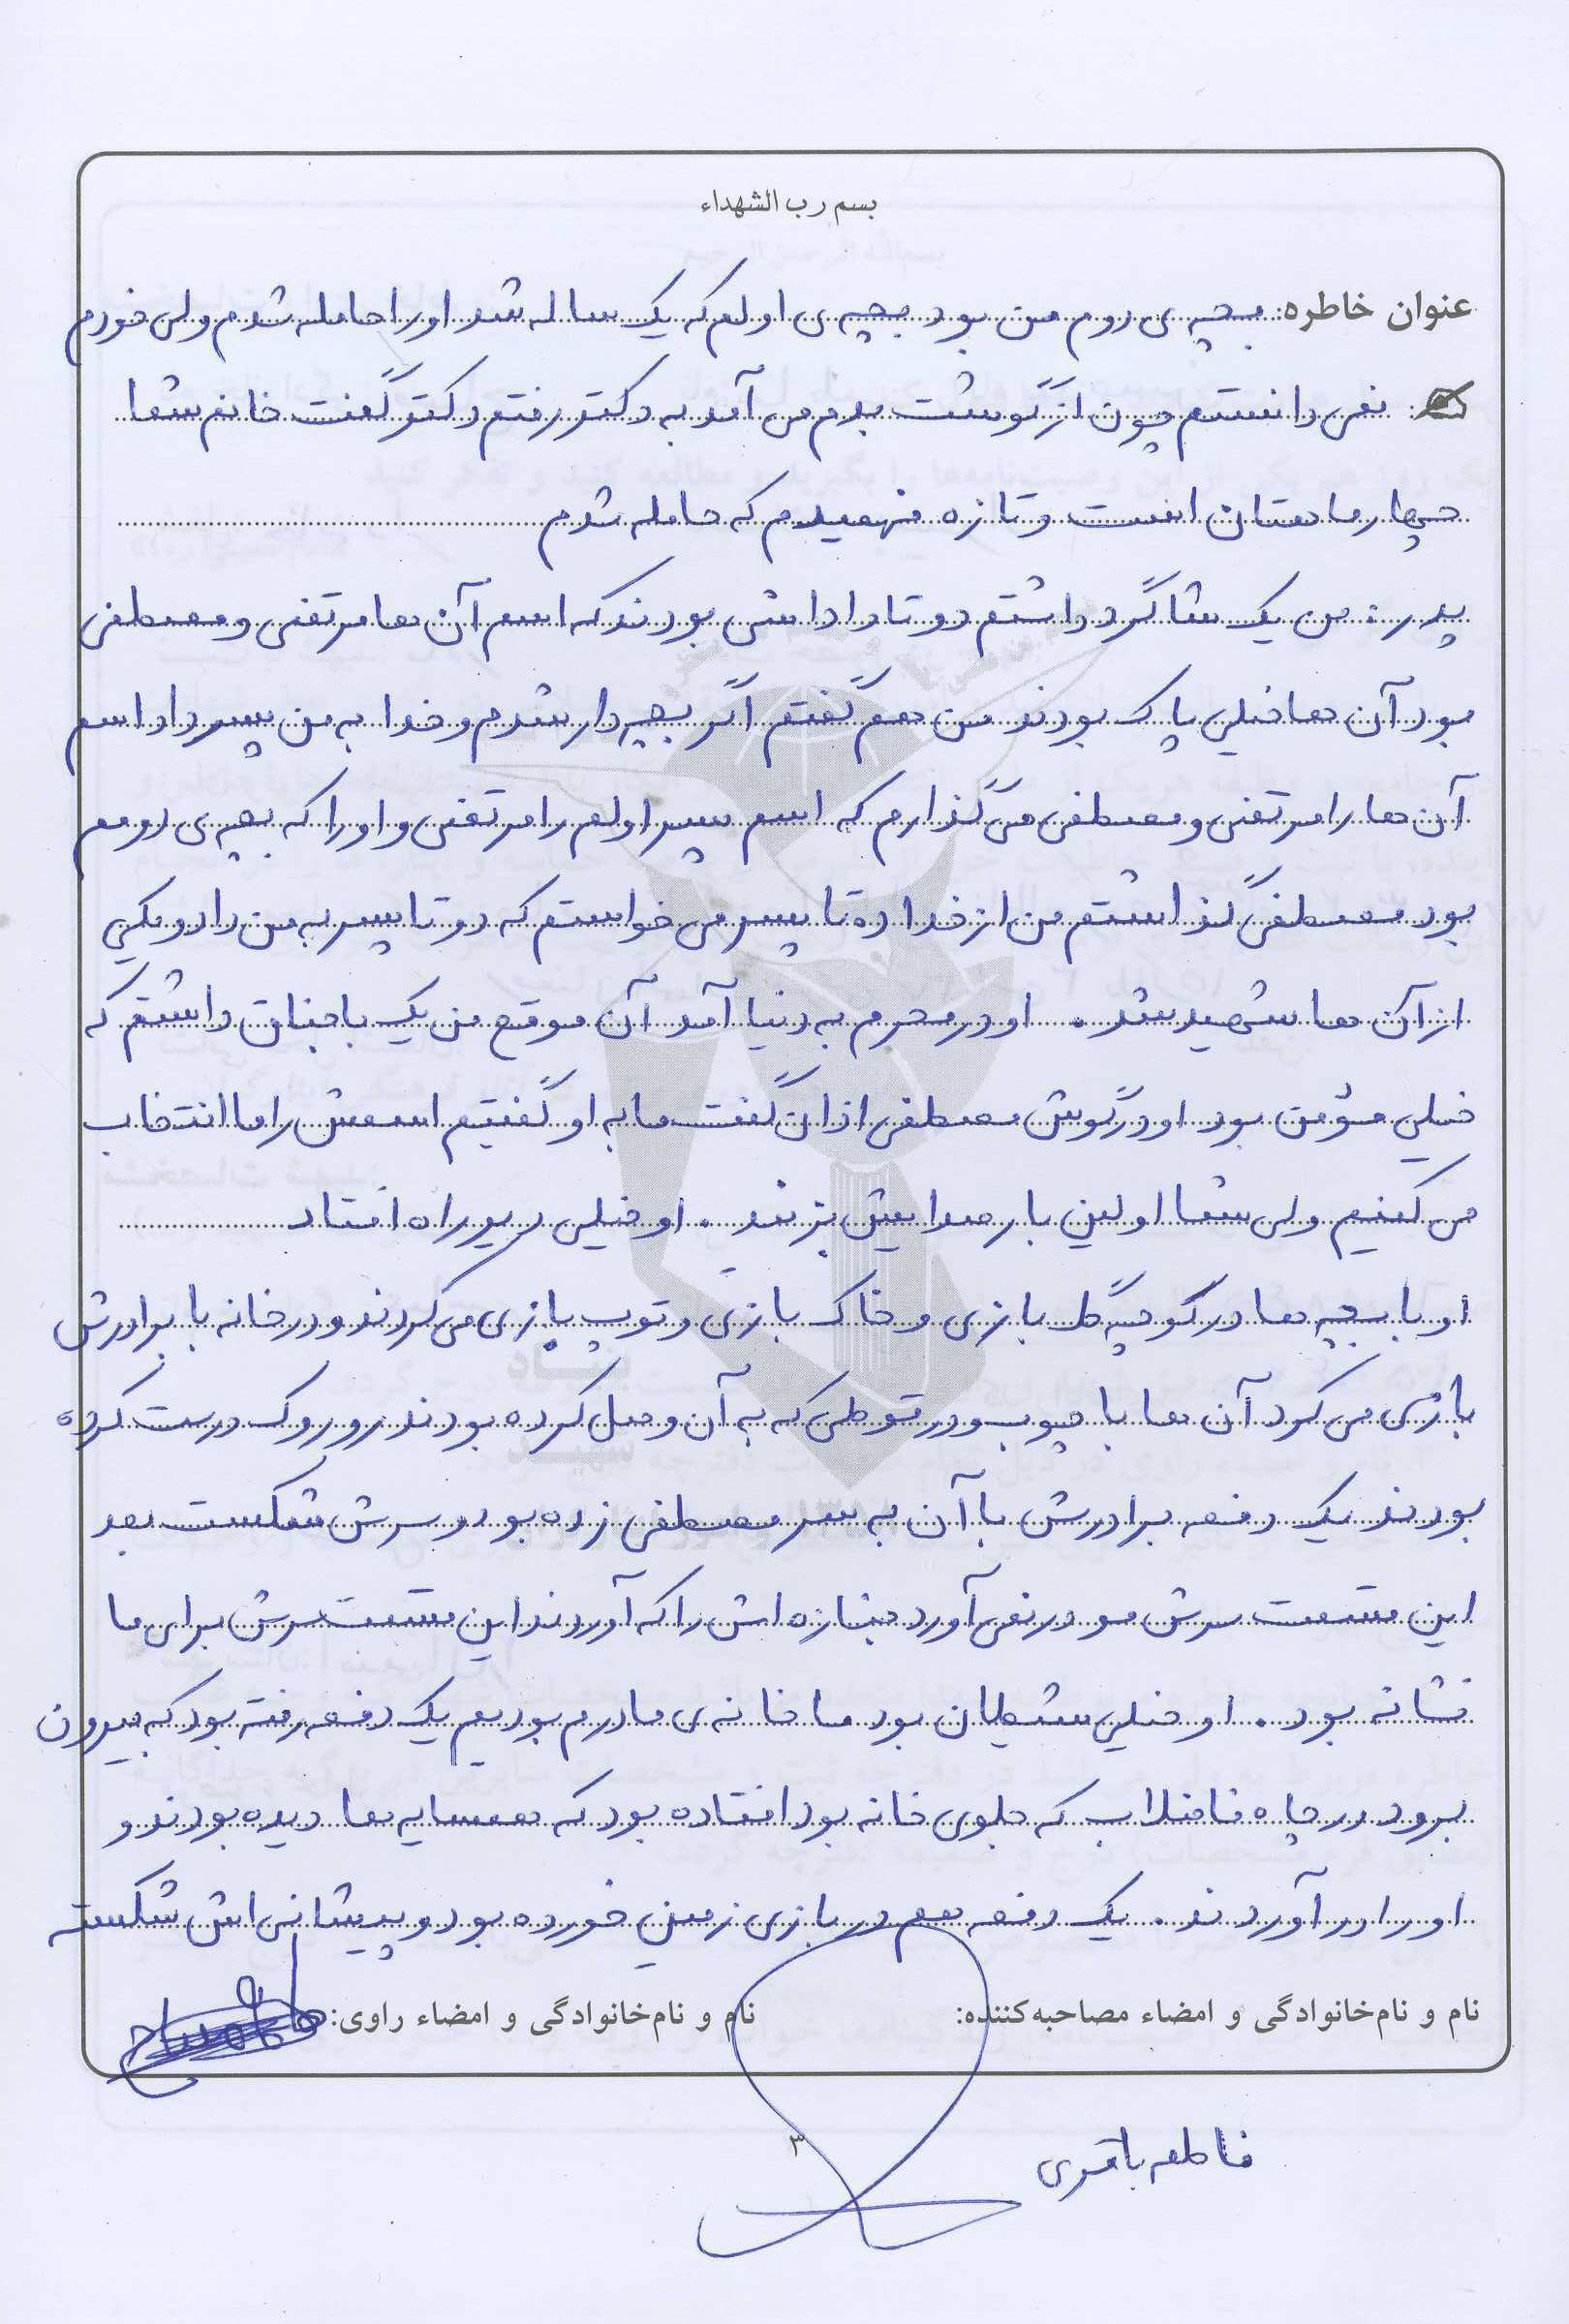 بسم رب الشهداء
عنوان خاطره: بچه ی دوم من بود بچه ی اولم که یک ساله شد او را حامله شدم ولی خودم
نمی دانستم چون از گوشت بدم می آمد به دکتر رفتم دکتر گفت خانم شما
چهار ماهتان است و تازه فهمیدم که حامله شدم
پدر: من یک شاگرد داشتم دو تا داداش بودند که اسم آن ها مرتضی و مصطفی
بود آن ها خیلی پاک بودند من هم گفتم اگر بچه دار شدم و خدا به من پسر داد اسم
آن ها را مرتضی و مصطفی می گذارم که اسم پسر اولم را مرتضی و او را که بچه ی دومم
بود مصطفی گذاشتم من از خدا ده تا پسر می خواستم که دو تا پسر به من داد و یکی
از آن ها شهید شد. او در محرم به دنیا آمد آن موقع من یک باجناق داشتم که
خیلی مؤمن بود او در گوش مصطفی اذان گفت ما به او گفتیم اسمش را ما انتخاب
می کنیم ولی شما اولین بار صدایش بزنید. او خیلی دیر راه افتاد
او با بچه ها در کوچه گل بازی و خاک بازی و توپ بازی می کردند و در خانه با برادرش
بازی می کرد آن ها با چوب و در قوطی که به آن وصل کرده بودند روروک درست کرده
بودند یک دفعه برادرش با آن به سر مصطفی زده بود و سرش شکست بعد
این قسمت سرش مو در نمی آورد جنازه اش را که آوردند این قسمت سرش برای ما
نشانه بود. او خیلی شیطان بود ما خانه ی مادرم بودیم یک دفعه رفته بود که بیرون
برود در چاه فاضلاب که جلوی خانه بود افتاده بود که همسایه ها دیده بودند و
او را در آوردند. یک دفعه هم در بازی زمین خورده بود و پیشانی اش شکسته
نام و نام‌خانوادگی و امضاء مصاحبه‌کننده: نام و نام‌خانوادگی و امضاء راوی:
فاطمه باقری
۳